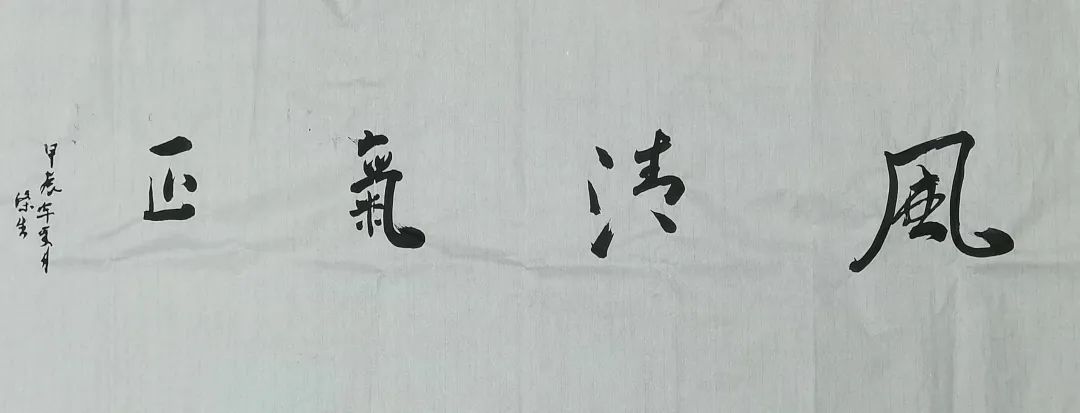 風清氣正
甲辰年夏月
榮生